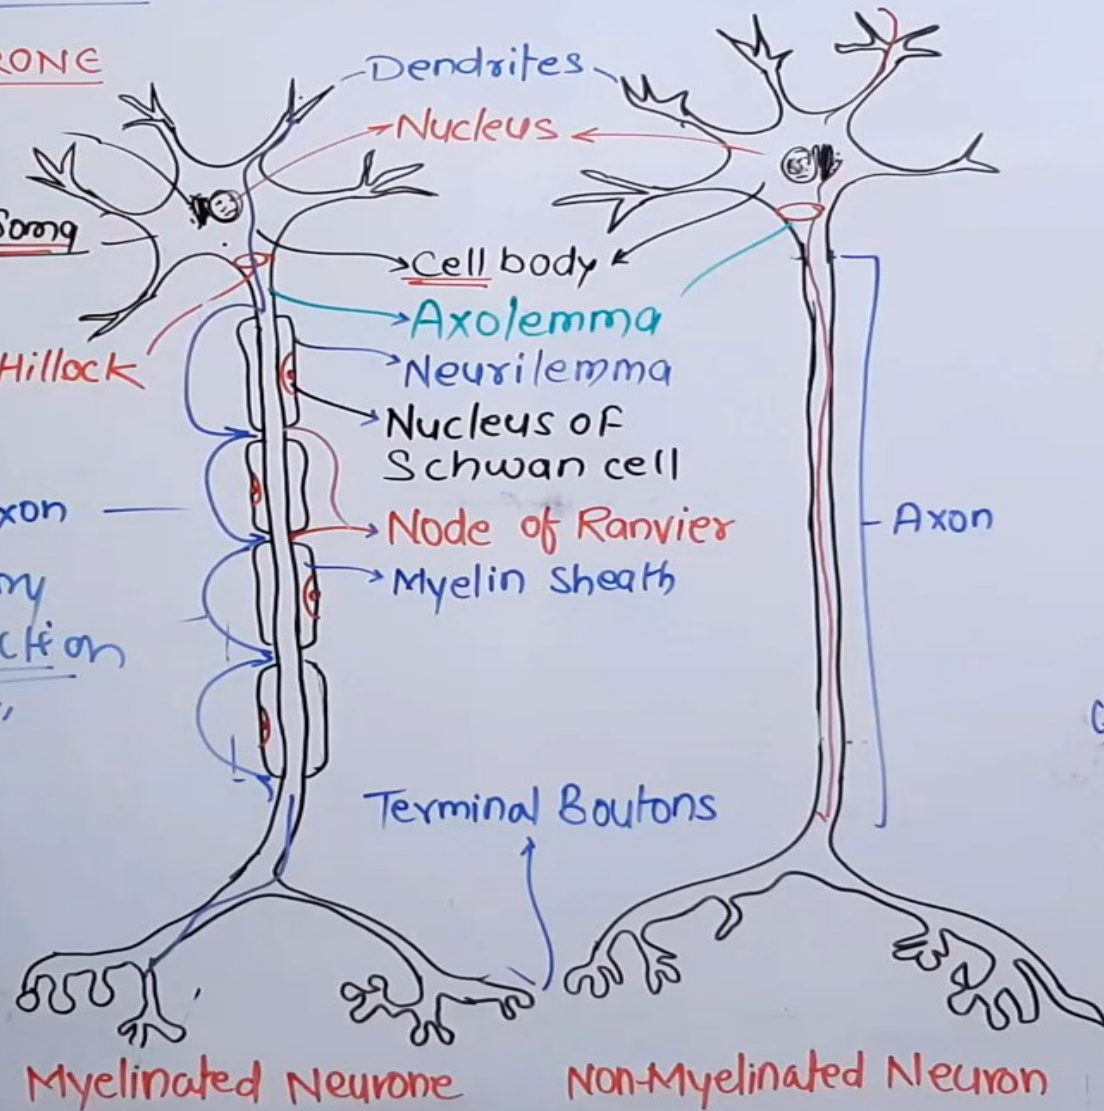 RONE
Dendrites
Nucleus
Soma
Cell body
Axolemma
Hillock
Neurilemma
Nucleus of
Schwan cell
xon
Node of Ranvier
Axon
Myelin Sheath
ry
ction
Terminal Boutons
Myelinated Neurone
Non-Myelinated Neuron